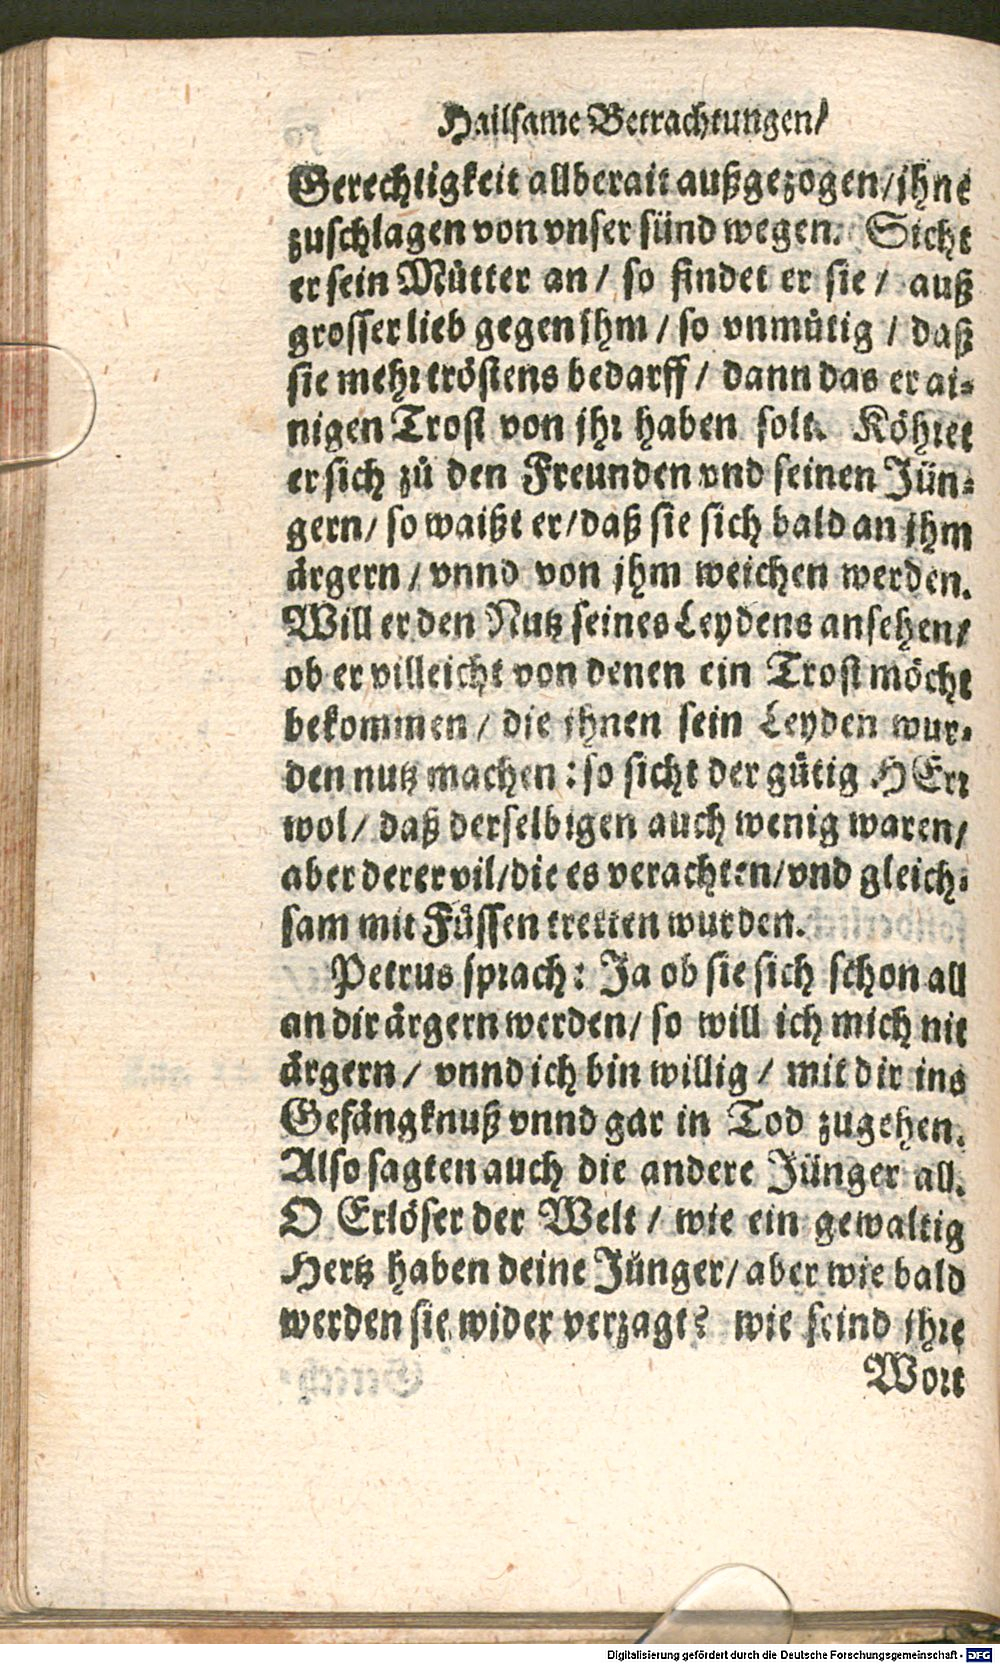 Hailsame Betrachtungen/
Gerechtigkeit allberait außgezogen/jhne
zuschlagen von vnser sünd wegen. Sicht
er sein Můtter an/ so findet er sie/ auß
grosser lieb gegen jhm/ so vnmůtig/ daß
sie mehr tröstens bedarff/ dann das er ai-
nigen Trost von jhr haben solt. Köhret
er sich zů den Freunden vnd seinen Jün-
gern/ so waißt er/daß sie sich bald an jhm
ärgern/ vnnd von jhm weichen werden.
Will er den Nutz seines Leydens ansehen/
ob er villeicht von denen ein Trost möcht
bekommen/ die jhnen sein Leyden wur-
den nutz machen: so sicht der gütig HErr
wol/ daß derselbigen auch wenig waren/
aber derer vil/die es verachten/vnd gleich-
sam mit Füssen tretten wurden.
Petrus sprach: Ja ob sie sich schon all
an dir ärgern werden/ so will ich mich nit
ärgern/ vnnd ich bin willig/ mit dir ins
Gefängknuß vnnd gar in Tod zugehen.
Also sagten auch die andere Jünger all.
O Erlöser der Welt/ wie ein gewaltig
Hertz haben deine Jünger/ aber wie bald
werden sie wider verzagt? wie seind jhre
Wort
Digitalisierung gefördert durch die Deutsche Forschungsgemeinschaft - DFG